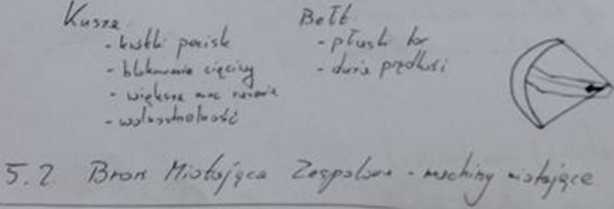 Kusza:
- krótki pocisk
- blokowanie cięciwy
- większa moc rażenia
- wolnostrzelność
Bełt:
- płaski tor
- duża prędkość
5.2 Broń Miotająca Zespołowa - machiny miotające